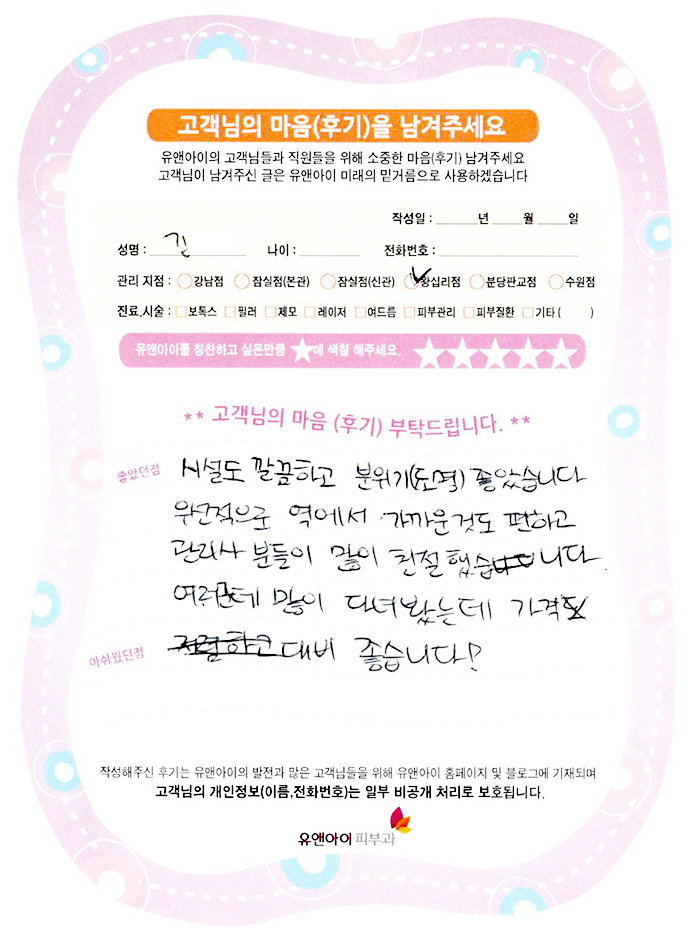 고객님의 마음(후기)을 남겨주세요
유앤아이의 고객님들과 직원들을 위해 소중한 마음(후기) 남겨주세요
고객님이 남겨주신 글은 유앤아이 미래의 밑거름으로 사용하겠습니다
작성일 : 년 월 일
성명 : 김 나이 : 전화번호 :
관리 지점 : 강남점 잠실점(본관) 잠실점(신관) 왕십리점 분당판교점 수원점
진료,시술 : 보톡스 필러 제모 레이저 여드름 피부관리 피부질환 기타 ( )
유앤아이를 칭찬하고 싶은만큼 ★에 색칠 해주세요. ★★★★★
** 고객님의 마음 (후기) 부탁드립니다. **
좋았던점
시설도 깔끔하고 분위기(조명) 좋았습니다
역에서 가까운것도 편하고
관리사 분들이 많이 친절했습니다.
여러군데 많이 다녀봤는데 가격
아쉬웠던점
대비 좋습니다!
작성해주신 후기는 유앤아이의 발전과 많은 고객님들을 위해 유앤아이 홈페이지 및 블로그에 기재되며
고객님의 개인정보(이름,전화번호)는 일부 비공개 처리로 보호됩니다.
유앤아이 피부과